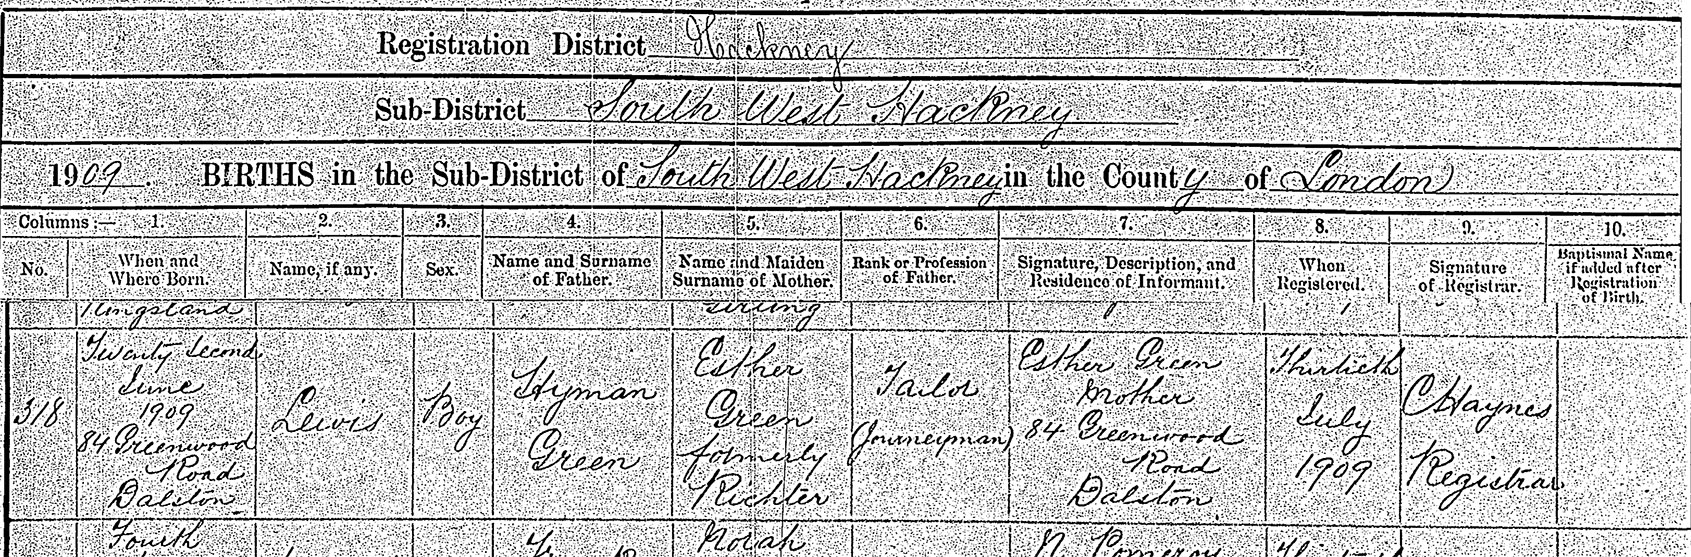 Registration District Hackney
Sub-District South West Hackney
1909. BIRTHS in the Sub-District of South West Hackney in the County of London
Columns:— 1. 2. 3. 4. 5. 6. 7. 8. 9. 10.
No.
When and
Where Born.
Name, if any.
Sex.
Name and Surname
of Father.
Name and Maiden
Surname of Mother.
Rank or Profession
of Father.
Signature, Description, and
Residence of Informant.
When
Registered.
Signature
of Registrar.
Baptismal Name,
if added after
Registration
of Birth.
Kingsland
318
Twenty second
June
1909
84 Greenwood
Road
Dalston
Lewis
Boy
Hyman
Green
Esther
Green
formerly
Richter
Tailor
(Journeyman)
Esther Green
Mother
84 Greenwood
Road
Dalston
Thirtieth
July
1909
C Haynes
Registrar
Fourth
Norah
N. Pomeroy